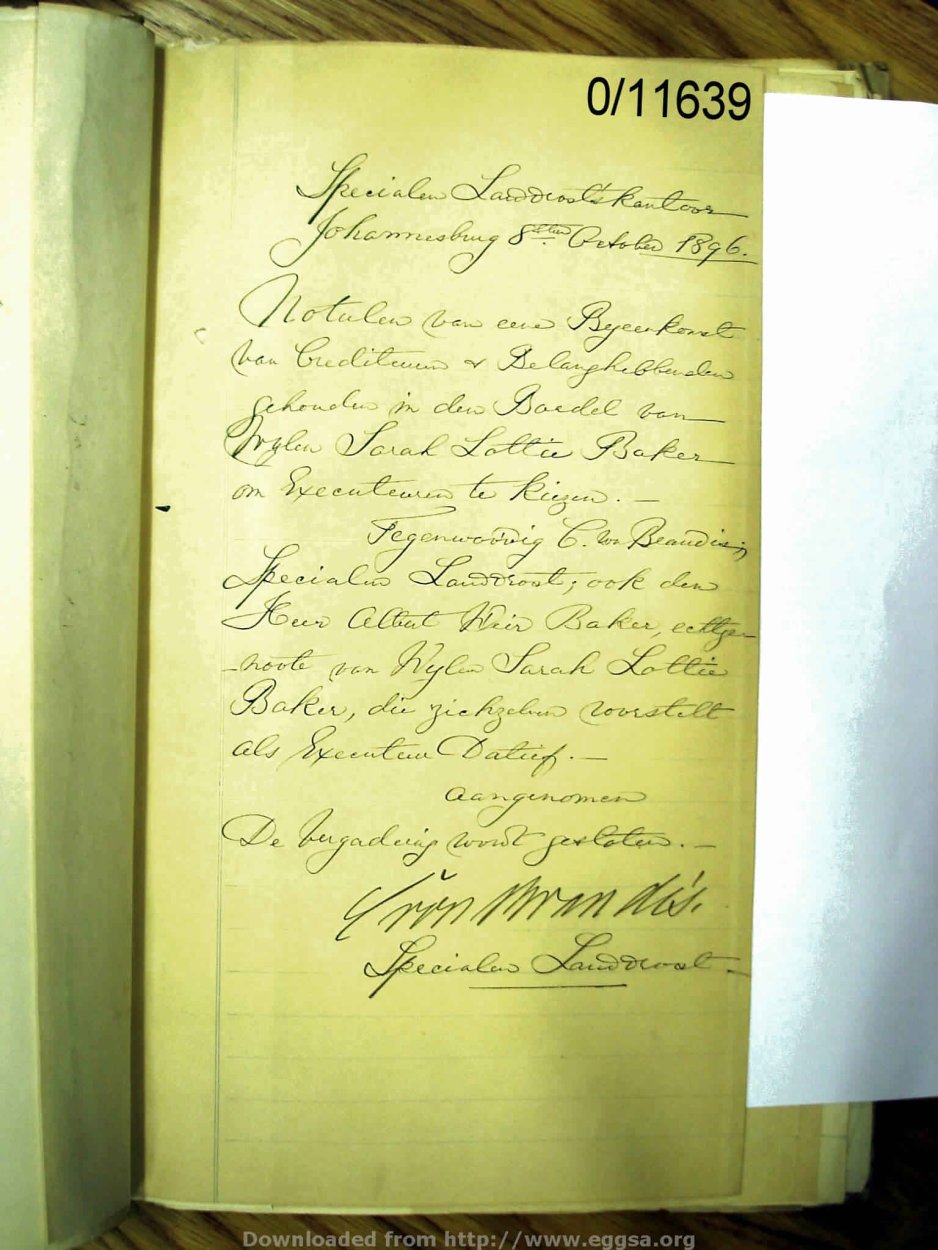 0/11639
Specialen Landdrost's kantoor
Johannesburg 8sten October 1896.
Notulen van eene Byeenkomst
van Crediteuren & Belanghebbenden
gehouden in den Boedel van
Wylen Sarah Lottie Baker
om Executeuren te Kiezen. —
Tegenwoordig C. von Brandis;
Specialen Landdrost; ook den
Heer Albert Weir Baker, echtge-
-noote van Wylen Sarah Lottie
Baker, die zichzelven voorstelt
als Executeur Datief. —
aangenomen
De Vergadering wordt gesloten. —
C von Brandis.
Specialen Landdrost -
Downloaded from http://www.eggsa.org